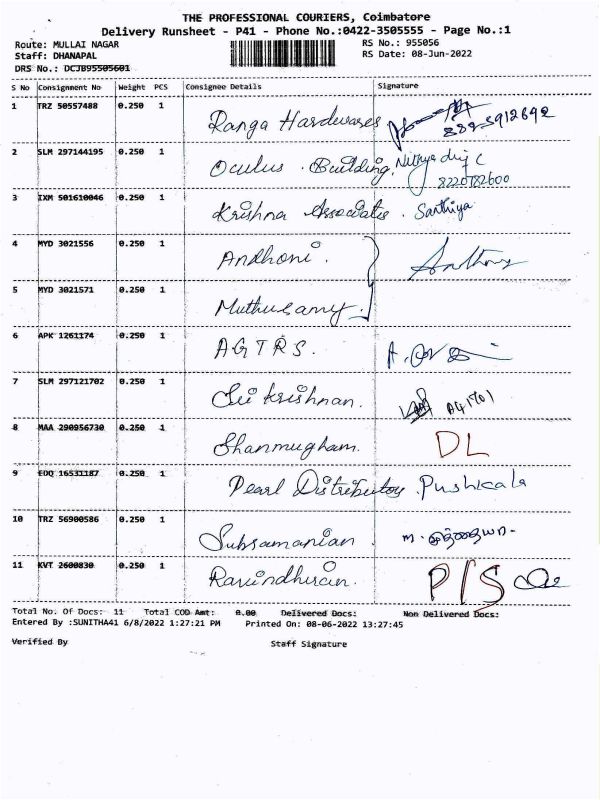 THE PROFESSIONAL COURIERS, Coimbatore
Delivery Runsheet - P41 - Phone No.:0422-3505555 - Page No.:1
Route: MULLAI NAGAR RS No.: 955056
Staff: DHANAPAL RS Date: 08-Jun-2022
DRS No.: DCJB95505601
S No Consignment No Weight PCS Consignee Details Signature
1 TRZ 50557488 0.250 1 Ranga Hardwares
2 SLM 297144195 0.250 1 Oculus . Building. Nithya
8220782600
3 IXM 501610046 0.250 1 Krishna Associates . Santhiya
4 MYD 3021556 0.250 1 Andhoni . Anthony
5 MYD 3021571 0.250 1 Muthusamy .
6 APK 1261174 0.250 1 AGTRS.
7 SLM 297121702 0.250 1 Sri krishnan.
8 MAA 290956730 0.250 1 Shanmugham. DL
9 EDQ 16531187 0.250 1 Pearl Distributors . Pushkala
10 TRZ 56900586 0.250 1 Subramanian .
11 KVT 2600830 0.250 1 Ravindhiran. P/S
Total No. Of Docs: 11 Total COD Amt: 0.00 Delivered Docs: Non Delivered Docs:
Entered By :SUNITHA41 6/8/2022 1:27:21 PM Printed On: 08-06-2022 13:27:45
Verified By Staff Signature